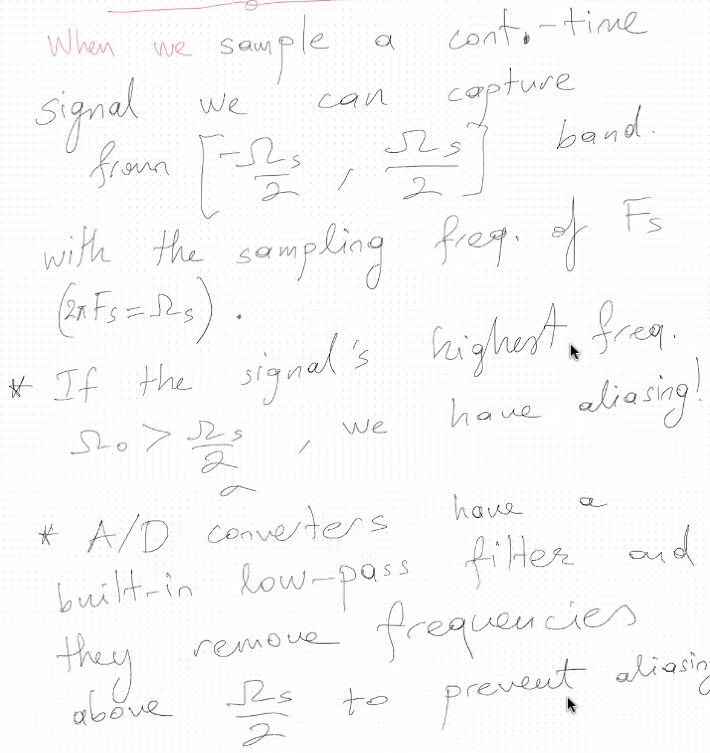 When we sample a cont.-time
signal we can capture
from [-Ωs/2, Ωs/2] band.
with the sampling freq. of Fs
(2πFs = Ωs).
* If the signal's highest freq.
Ωo > Ωs/2, we have aliasing!
* A/D converters have a
built-in low-pass filter and
they remove frequencies
above Ωs/2 to prevent aliasing